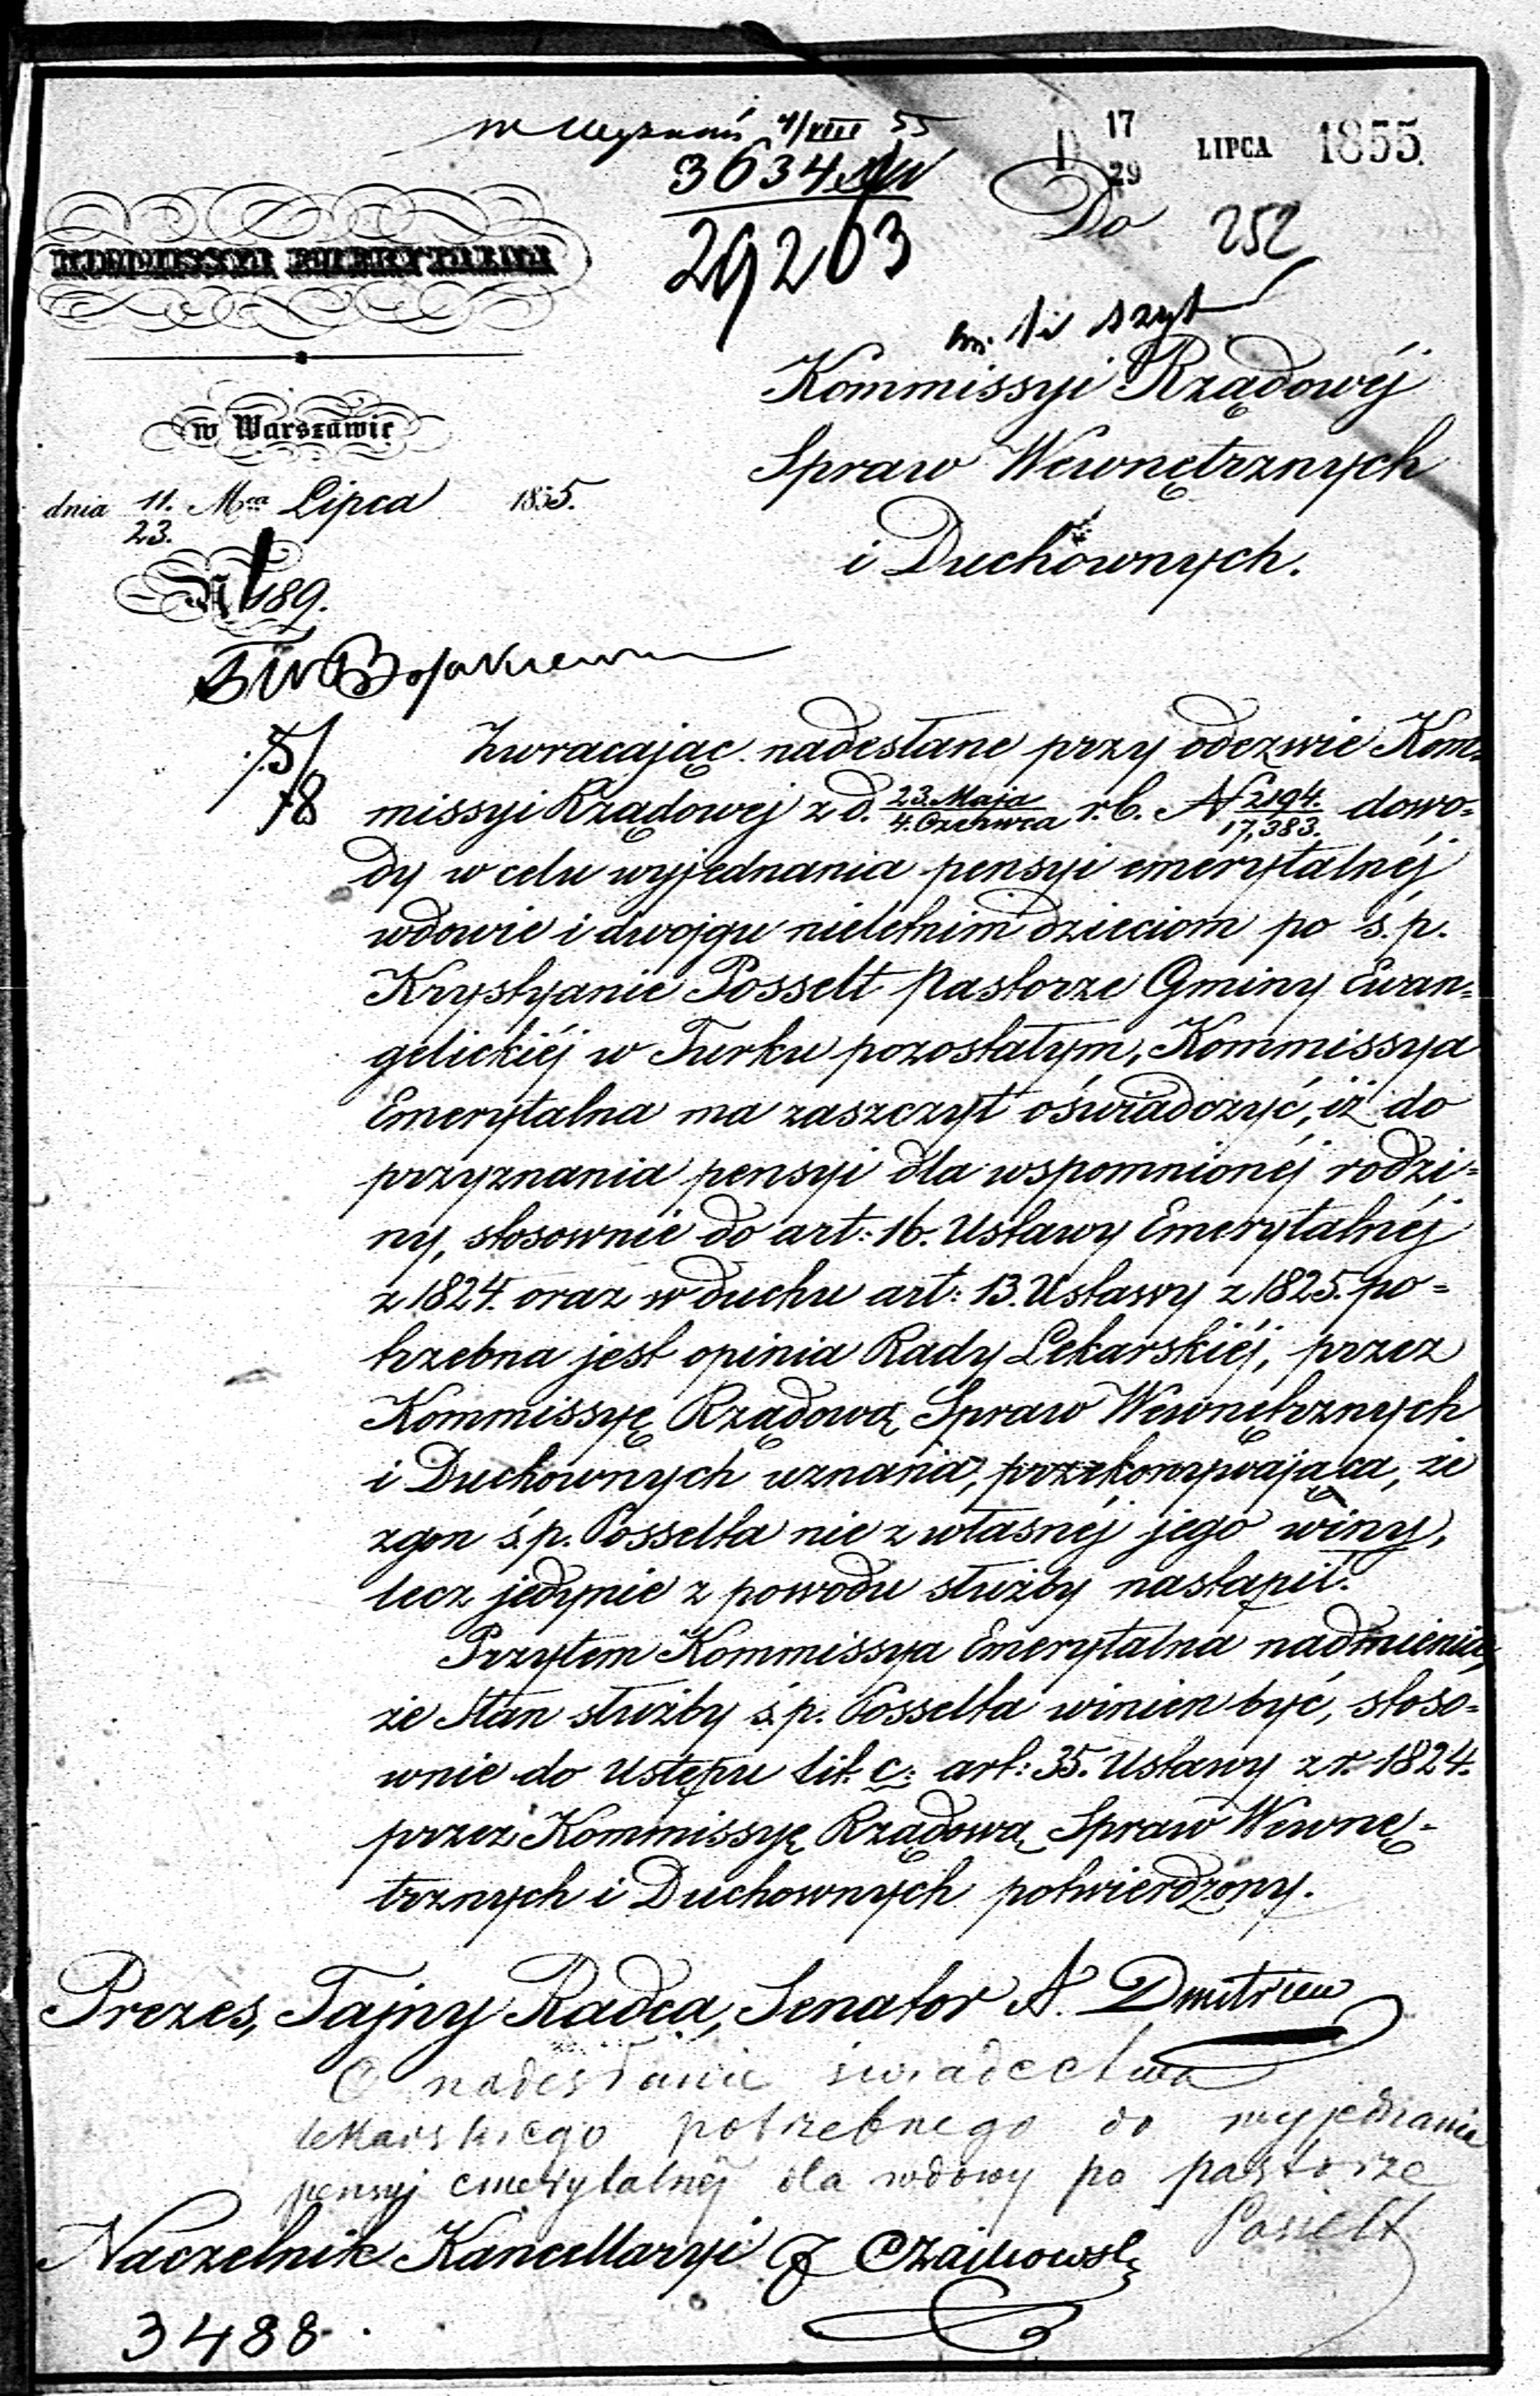 4/VIII 55
D 17/29 LIPCA 1855.
3634
29203
Do
252
KOMMISSYA EMERYTALNA
Kommissyi Rządowéj
w Warszawie
Spraw Wewnętrznych
dnia 11./23. Mca Lipca 1855.
i Duchownych.
189.
5/8
Zwracając nadesłane przy odezwie Kom-
missyi Rządowej z d. 23. Maja/4. Czerwca r.b. N 2194./17,383. dowo-
dy w celu wyjednania pensyi emerytalnéj
wdowie i dwojgu nieletnim dzieciom po ś.p.
Krystyanie Posselt Pastorze Gminy Ewan-
gelickiéj w Turku pozostałym, Kommissya
Emerytalna ma zaszczyt oświadczyć, iż do
przyznania pensyi dla wspomnionéj rodzi-
ny, stosownie do art: 16. Ustawy Emerytalnéj
z 1824. oraz w duchu art: 13. Ustawy z 1825. po-
trzebna jest opinia Rady Lekarskiéj, przez
Kommissyę Rządową Spraw Wewnętrznych
i Duchownych uznana, przekonywająca, że
zgon ś.p. Posselta nie z własnéj jego winy,
lecz jedynie z powodu służby nastąpił.
Przytem Kommissya Emerytalna nadmienia,
że Stan służby ś.p. Posselta winien być, stoso-
wnie do Ustępu lit. c: art: 35. Ustawy z r. 1824.
przez Kommissyę Rządową Spraw Wewnę-
trznych i Duchownych potwierdzony.
Prezes, Tajny Radca, Senator A. Dmitriew
O nadesłanie świadectwa
lekarskiego potrzebnego do wyjednania
pensyj emerytalnéj dla wdowy po pastorze
Posselt
Naczelnik Kancellaryi J Czajkowski
3488.